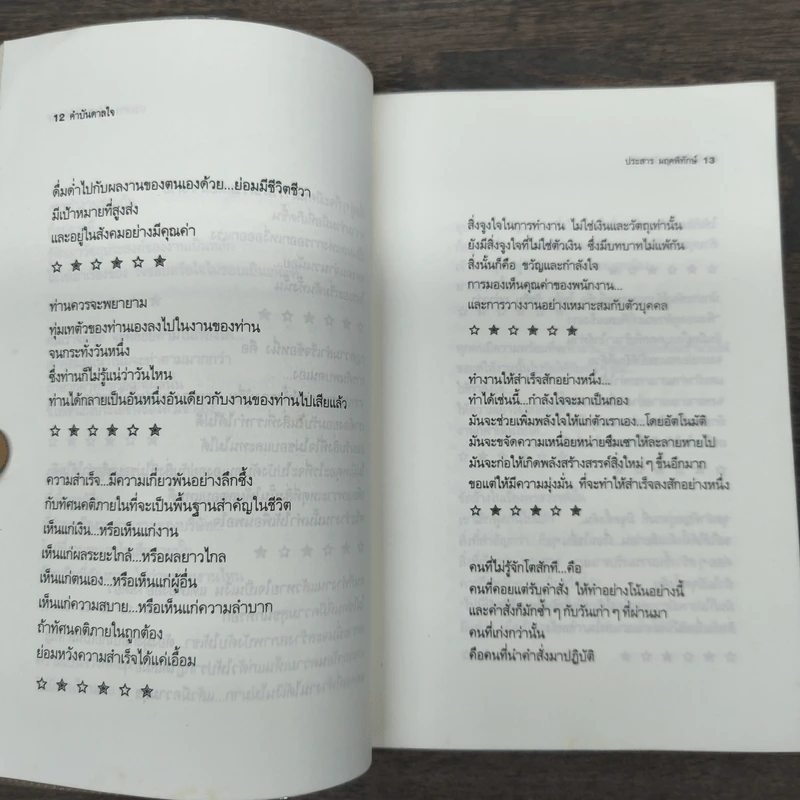 12 คำบันดาลใจ
ดื่มด่ำไปกับผลงานของตนเองด้วย...ย่อมมีชีวิตชีวา
มีเป้าหมายที่สูงส่ง
และอยู่ในสังคมอย่างมีคุณค่า
ท่านควรจะพยายาม
ทุ่มเทตัวของท่านเองลงไปในงานของท่าน
จนกระทั่งวันหนึ่ง
ซึ่งท่านก็ไม่รู้แน่ว่าวันไหน
ท่านได้กลายเป็นอันหนึ่งอันเดียวกับงานของท่านไปเสียแล้ว
ความสำเร็จ...มีความเกี่ยวพันอย่างลึกซึ้ง
กับทัศนคติภายในที่จะเป็นพื้นฐานสำคัญในชีวิต
เห็นแก่เงิน...หรือเห็นแก่งาน
เห็นแก่ผลระยะใกล้...หรือผลยาวไกล
เห็นแก่ตนเอง...หรือเห็นแก่ผู้อื่น
เห็นแก่ความสบาย...หรือเห็นแก่ความลำบาก
ถ้าทัศนคติภายในถูกต้อง
ย่อมหวังความสำเร็จได้แค่เอื้อม
ประสาร มฤคพิทักษ์ 13
สิ่งจูงใจในการทำงาน ไม่ใช่เงินและวัตถุเท่านั้น
ยังมีสิ่งจูงใจที่ไม่ใช่ตัวเงิน ซึ่งมีบทบาทไม่แพ้กัน
สิ่งนั้นก็คือ ขวัญและกำลังใจ
การมองเห็นคุณค่าของพนักงาน...
และการวางงานอย่างเหมาะสมกับตัวบุคคล
ทำงานให้สำเร็จสักอย่างหนึ่ง...
ทำได้เช่นนี้...กำลังใจจะมาเป็นกอง
มันจะช่วยเพิ่มพลังใจให้แก่ตัวเราเอง...โดยอัตโนมัติ
มันจะขจัดความเหนื่อยหน่ายซึมเซาให้ละลายหายไป
มันจะก่อให้เกิดพลังสร้างสรรค์สิ่งใหม่ๆ ขึ้นอีกมาก
ขอแต่ให้มีความมุ่งมั่น ที่จะทำให้สำเร็จลงสักอย่างหนึ่ง
คนที่ไม่รู้จักโตสักที...คือ
คนที่คอยแต่รับคำสั่ง ให้ทำอย่างโน้นอย่างนี้
และคำสั่งก็มักซ้ำๆ กับวันเก่าๆ ที่ผ่านมา
คนที่เก่งกว่านั้น
คือคนที่นำคำสั่งมาปฏิบัติ